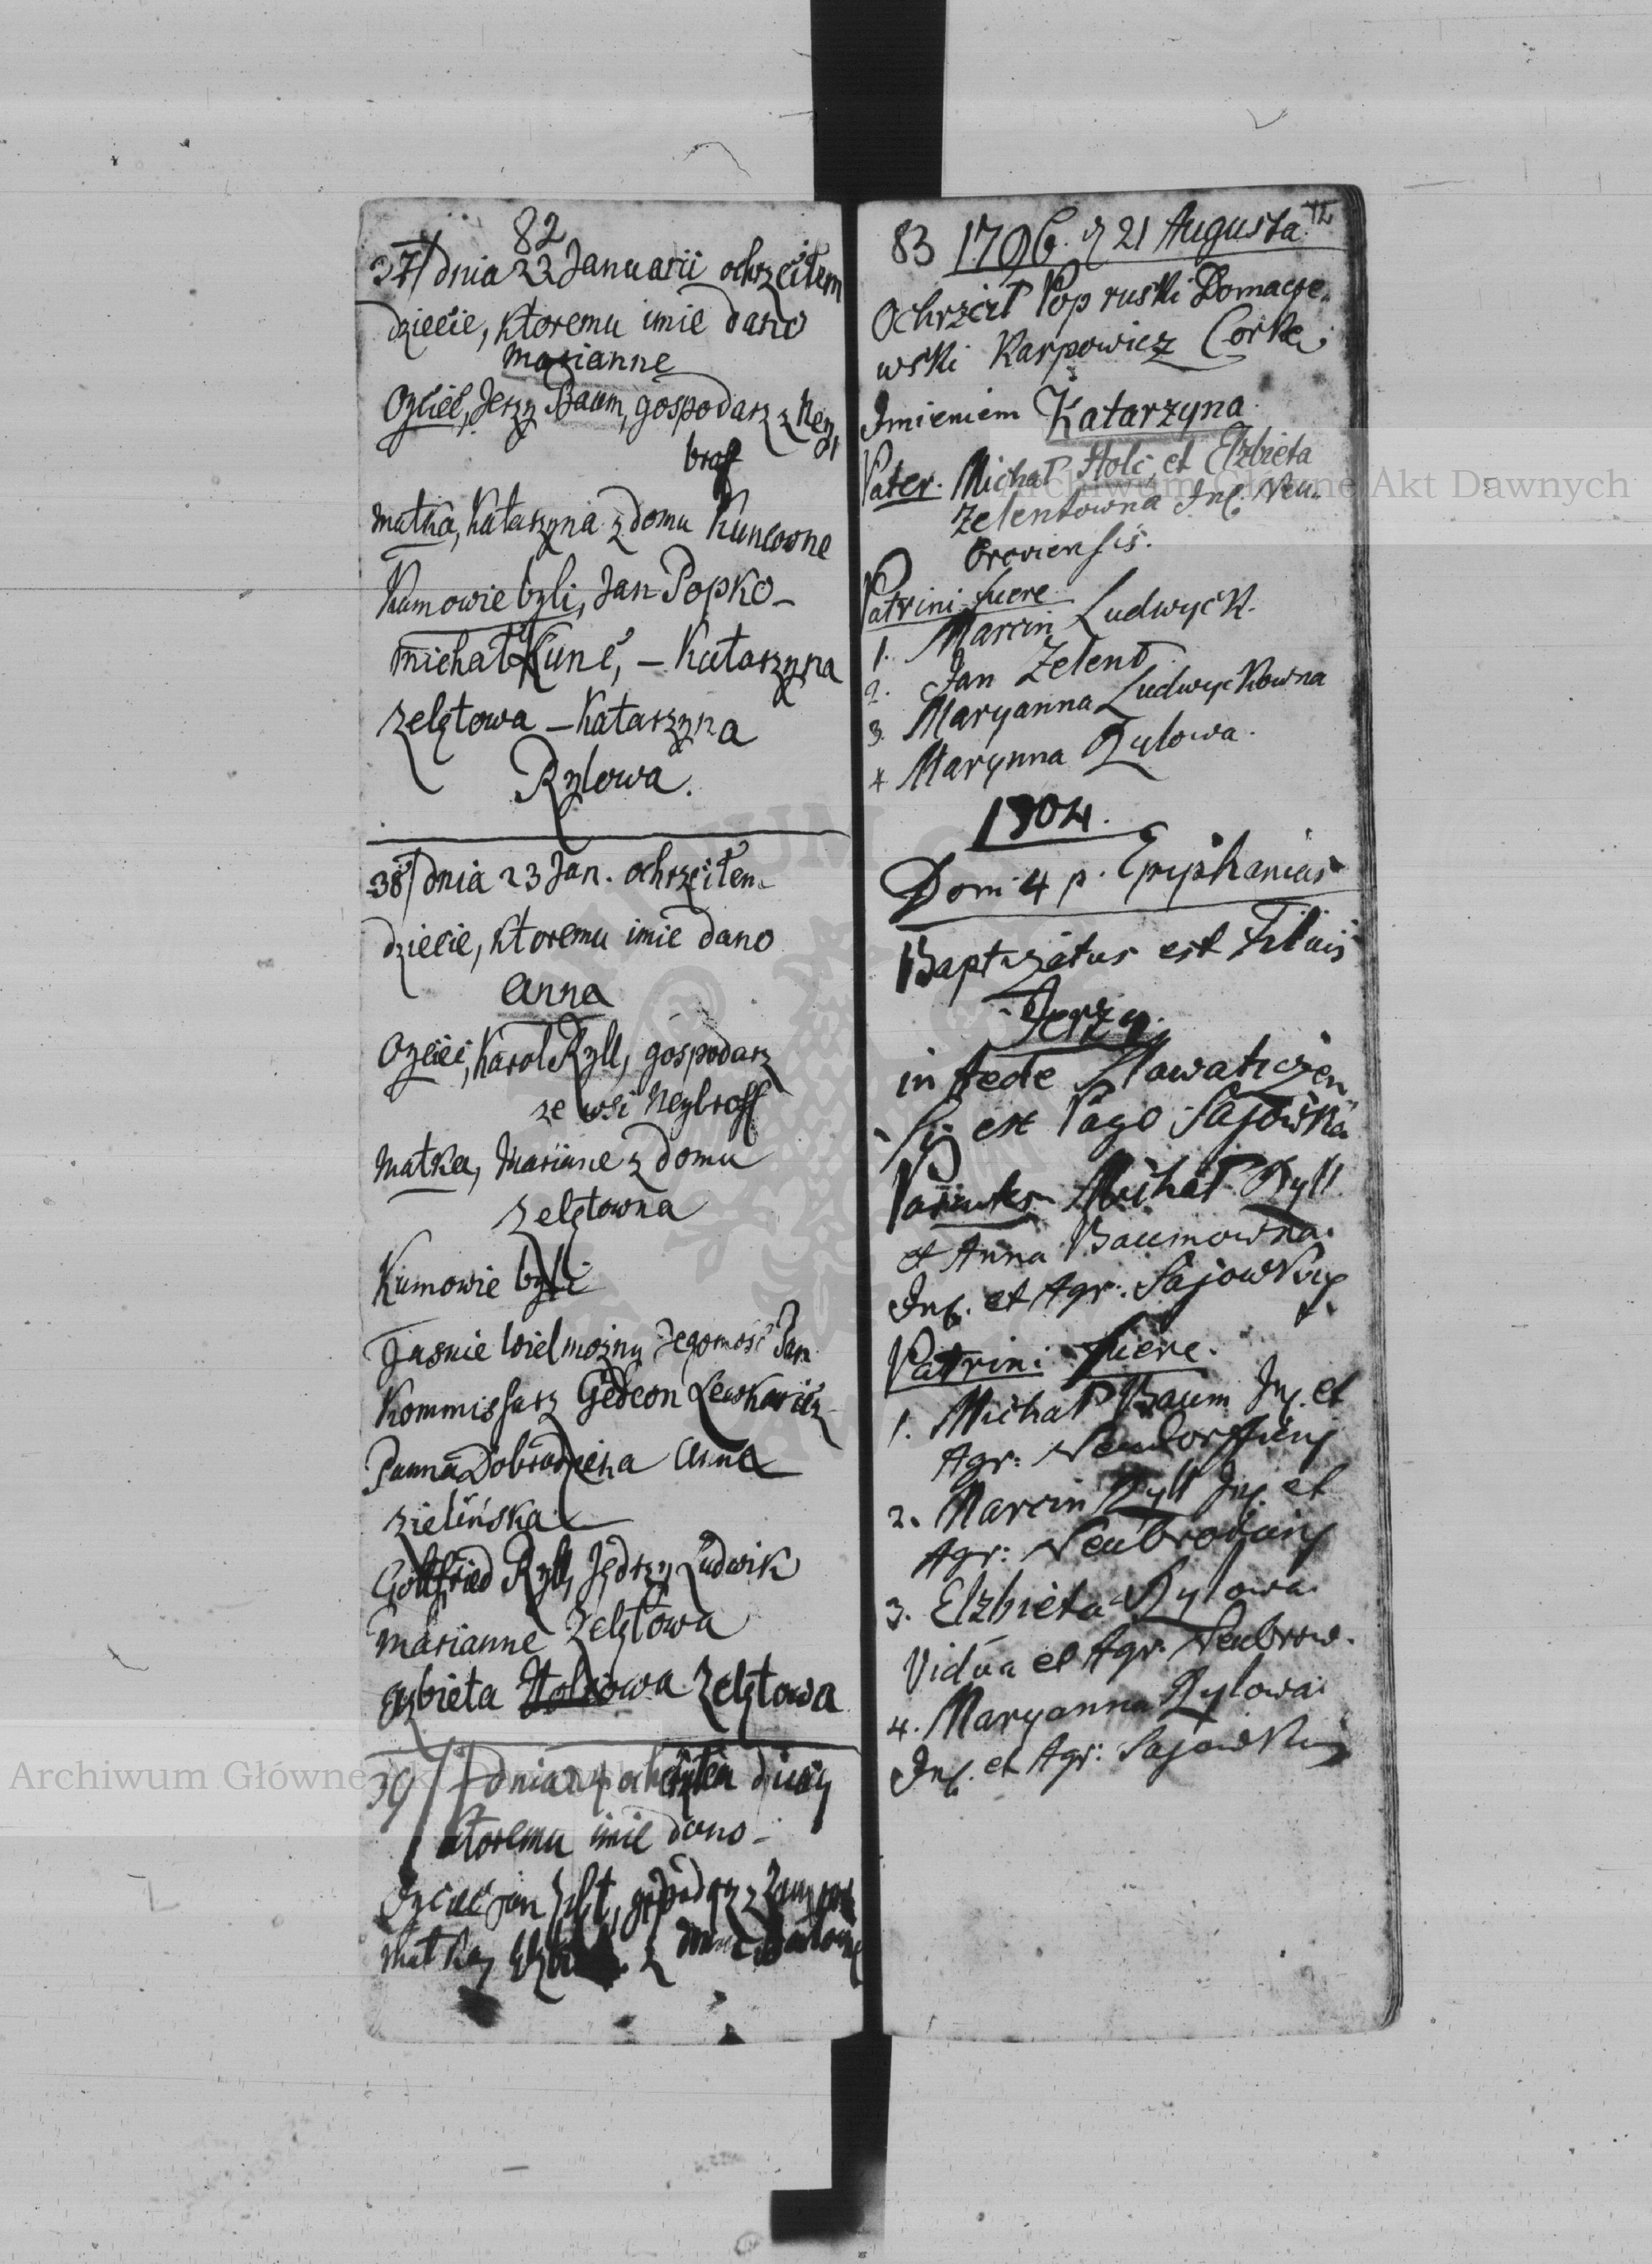 82
37/ dnia 22 Januarii ochrzcilem
dziecie, ktoremu imie dano
Mariannę
Oyciec, Jerzy Baum, gospodarz z Ney
broff
Matka, Katarzyna z domu Kuncowne
Kumowie byli, Jan Popko –
Michał Kunc, – Katarzyna
Zelętowa – Katarzyna
Rylowa.
38/ dnia 23 Jan. ochrzcilem
dziecie, ktoremu imie dano
Anna
Oyciec, Karol Ryll, gospodarz
ze wsi Neybroff
Matka, Marianne z domu
Zelętowna
Kumowie byli
Jasnie Wielmożny Jegomość Pan
Kommissarz Gedeon
Panna Dobrodzieia Anna
Zielińska
Gottfried Ryll, Jędrzy Ludwik
Marianne Zelętowa
Elzbieta Holcowa Zelętowa
39/ dnia
ktoremu imie dano –
Oyciec Jan Zelęt, gospodarz z
Matka, z domu
83 1796. d 21 Augusta 42
Ochrzcił Pop ruski Domacze,
wski Karpowicz Corke
Imieniem Katarzyna
Pater. Michał Holc et Elżbieta
Zelentowna Inq. Neu-
broviensis.
Patrini fuere
1. Marcin Ludwyck.
2. Jan Zelent.
3. Maryanna Ludwyckowna
4 Marynna Rylowa.
1804.
Dom 4 p. Epiphanias
Baptizatus est Filius
Jerzy.
in Aede Slawaticzen
si ex Pago Sajowka
Parentes Michał Ryll
et Anna Baumowna.
Inq. et Agr. Sajowkiens
Patrini fuere.
1. Michał Baum Inq. et
Agr: Neudorffiens
2. Marcin Ryll Inq. et
Agr: Neubroviens
3. Elzbieta Rylowa
Vidua et Agr. Neubrow.
4. Maryanna Rylowa
Inq. et Agr: Sajowkiens
Archiwum Główne Akt Dawnych
Archiwum Główne Akt Dawnych